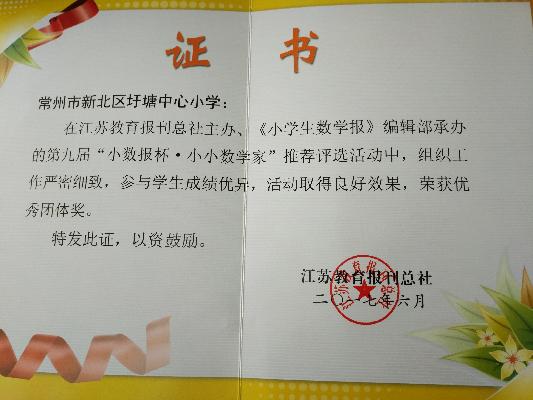 证书
常州市新北区圩塘中心小学：
在江苏教育报刊总社主办、《小学生数学报》编辑部承办
的第九届“小数报杯·小小数学家”推荐评选活动中，组织工
作严密细致，参与学生成绩优异，活动取得良好效果，荣获优
秀团体奖。
特发此证，以资鼓励。
江苏教育报刊总社
二〇一七年六月